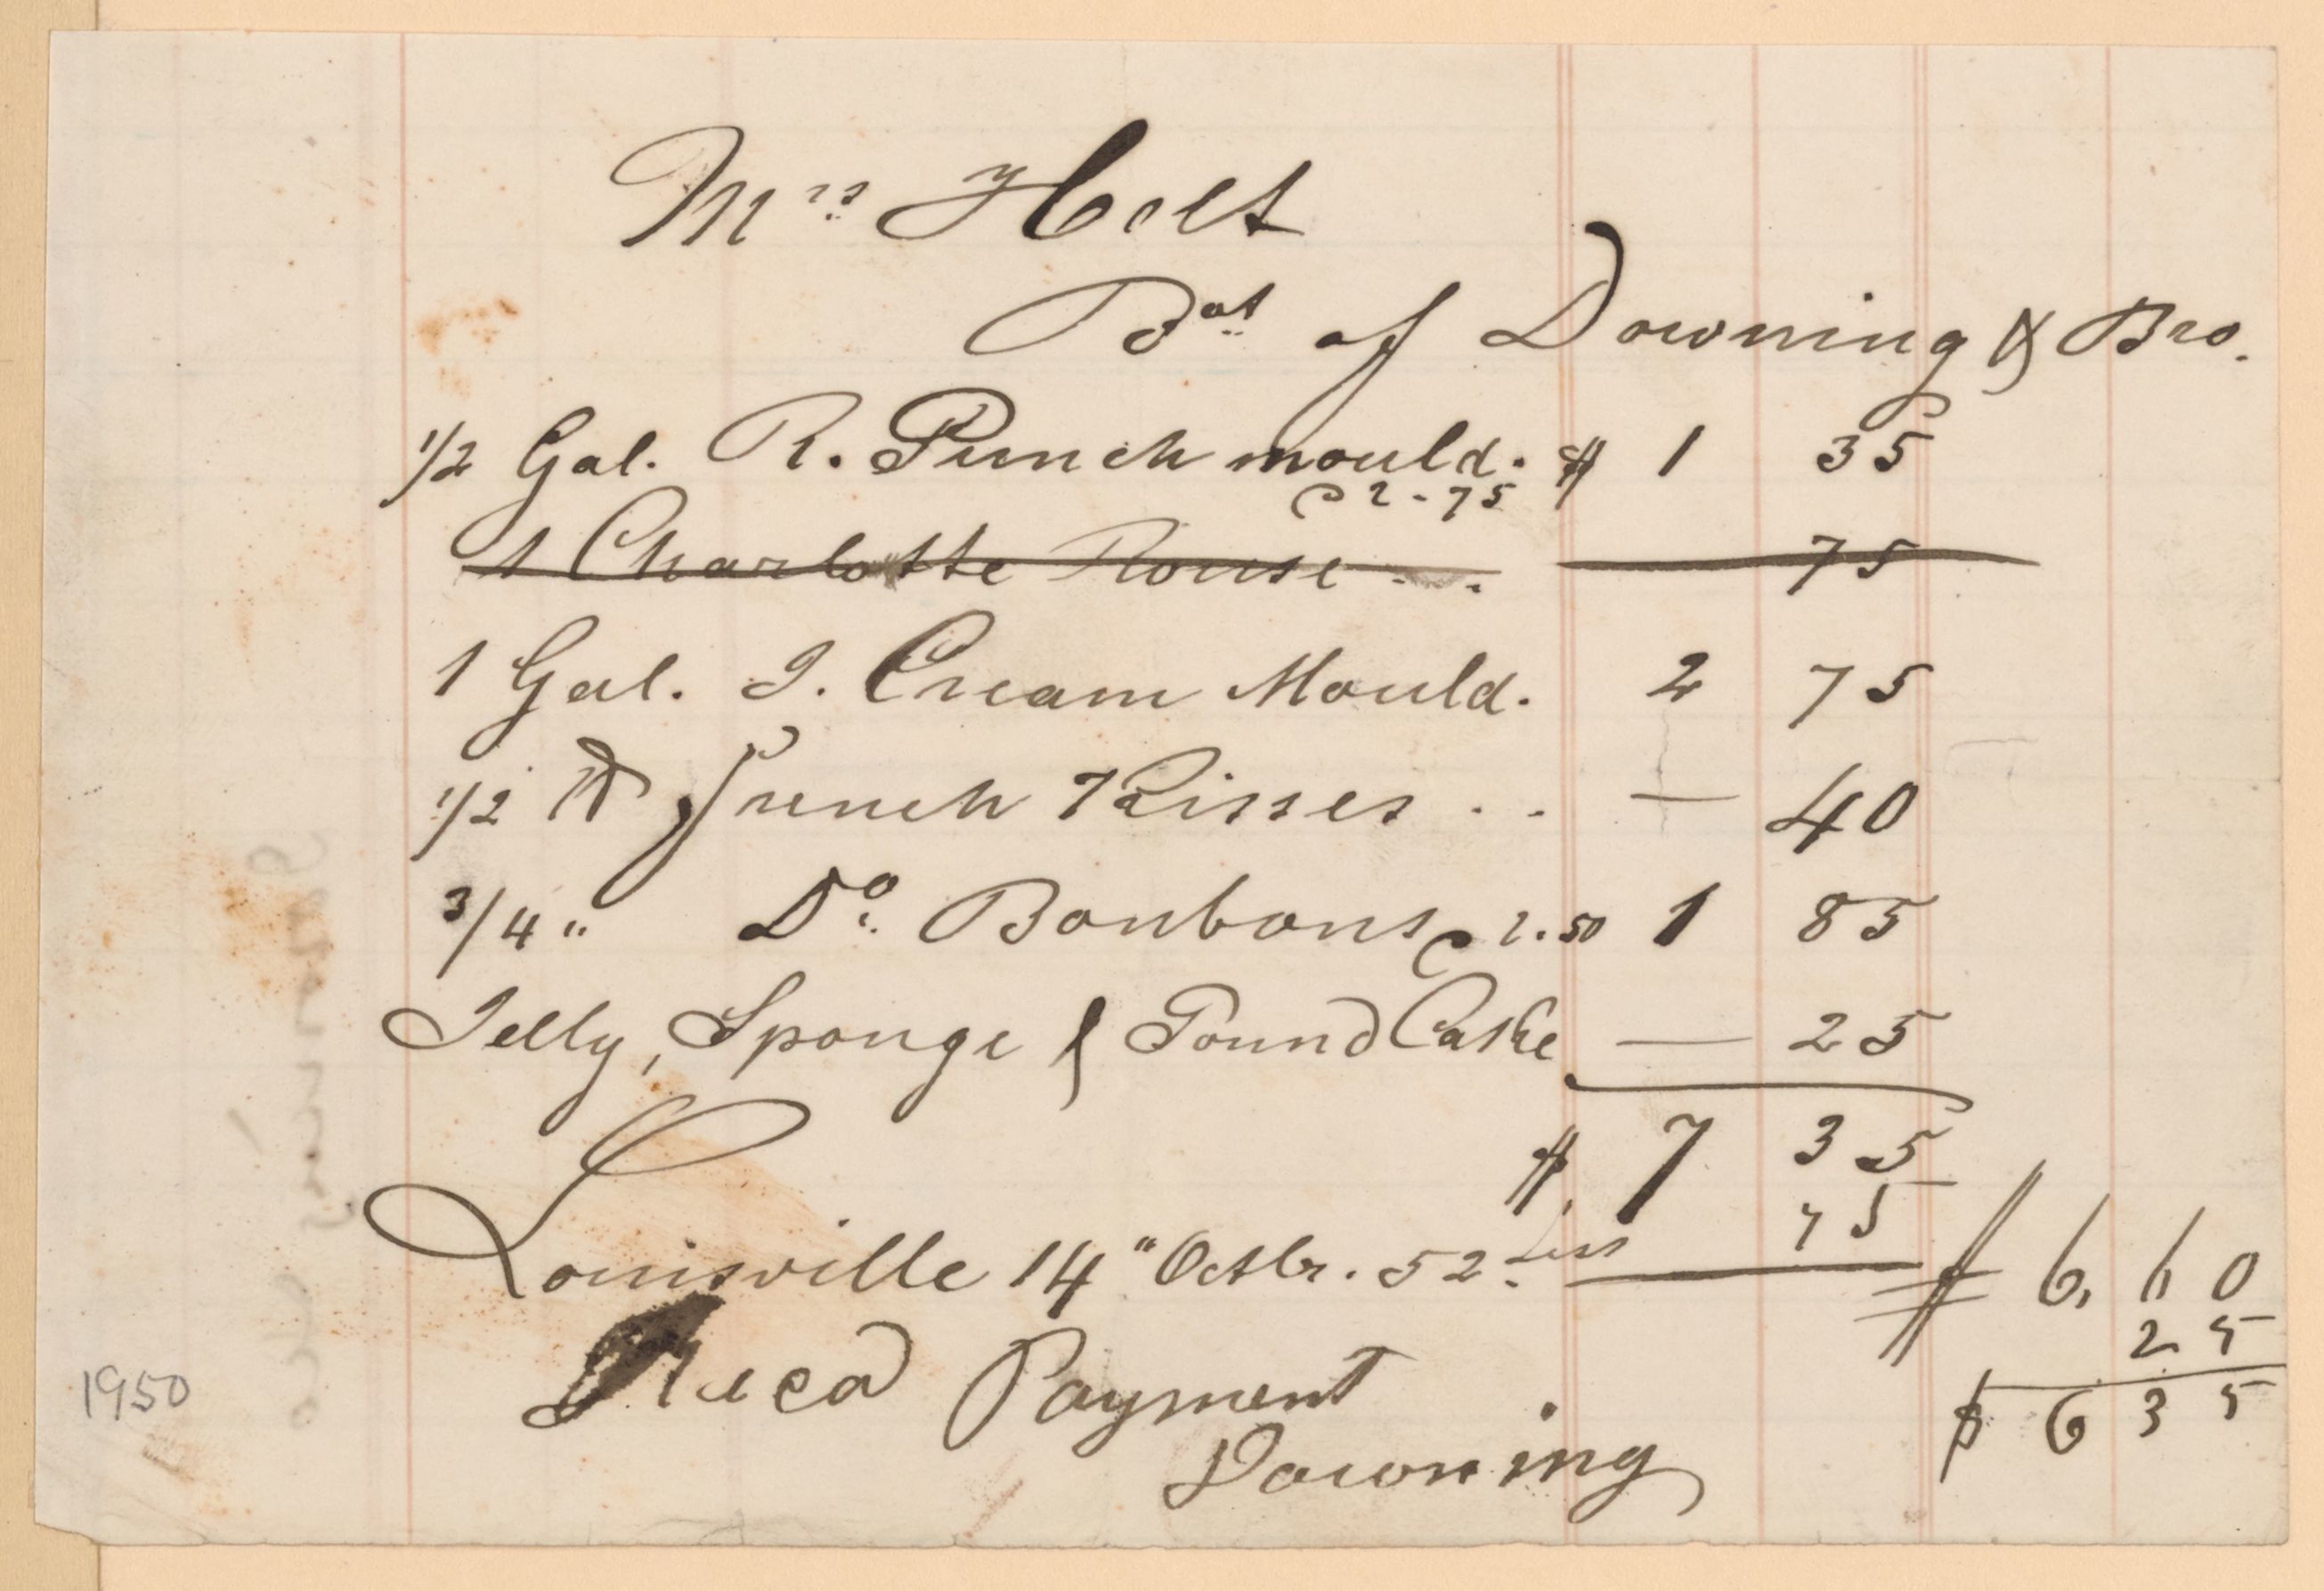 Mrs Holt
Bot of Downing & Bro.
1/2 Gal. R. Punch mould. $ 1 35
@ 2-75
1 Charlotte Rouse . . 75
1 Gal. I. Cream Mould. 2 75
1/2 ℔ French Kisses . . — 40
3/4 " Do. Bonbons @ 2.50 1 85
Jelly, Sponge & Pound Cake — 25
$. 7 35
Less 75
Louisville 14" Octbr. 52. $ 6.60
25
$ 6 35
Recd Payment
Downing
1950